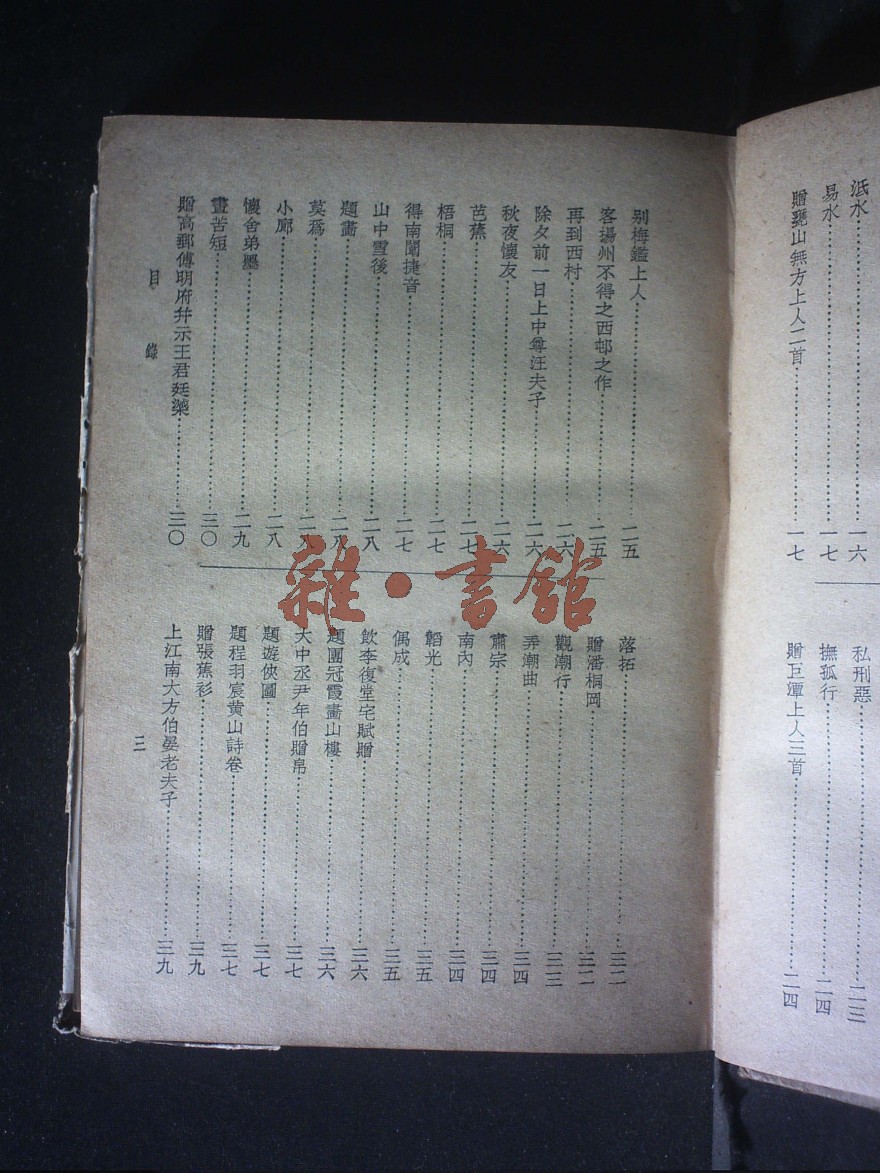 泜水⋯⋯一六
易水⋯⋯一七
贈甕山無方上人二首⋯⋯一七
私刑惡⋯⋯二三
撫孤行⋯⋯二四
贈巨潭上人三首⋯⋯二四
别梅鑑上人⋯⋯二五
客揚州不得之西邨之作⋯⋯二五
再到西村⋯⋯二六
除夕前一日上中尊汪夫子⋯⋯二六
秋夜懷友⋯⋯二六
芭蕉⋯⋯二七
梧桐⋯⋯二七
得南闈捷音⋯⋯二七
山中雪後⋯⋯二八
題畫⋯⋯二八
莫爲⋯⋯二八
小廊⋯⋯二八
懷舍弟墨⋯⋯二九
晝苦短⋯⋯三〇
贈高郵傅明府幷示王君廷𣜩⋯⋯三〇
落拓⋯⋯三二
贈潘桐岡⋯⋯三二
觀潮行⋯⋯三三
弄潮曲⋯⋯三四
肅宗⋯⋯三四
南內⋯⋯三四
韜光⋯⋯三五
偶成⋯⋯三五
飲李復堂宅賦贈⋯⋯三六
題團冠霞畫山樓⋯⋯三六
大中丞尹年伯贈帛⋯⋯三七
題遊俠圖⋯⋯三七
題程羽宸黄山詩卷⋯⋯三七
贈張蕉衫⋯⋯三九
上江南大方伯晏老夫子⋯⋯三九
目錄
三
雜·書館